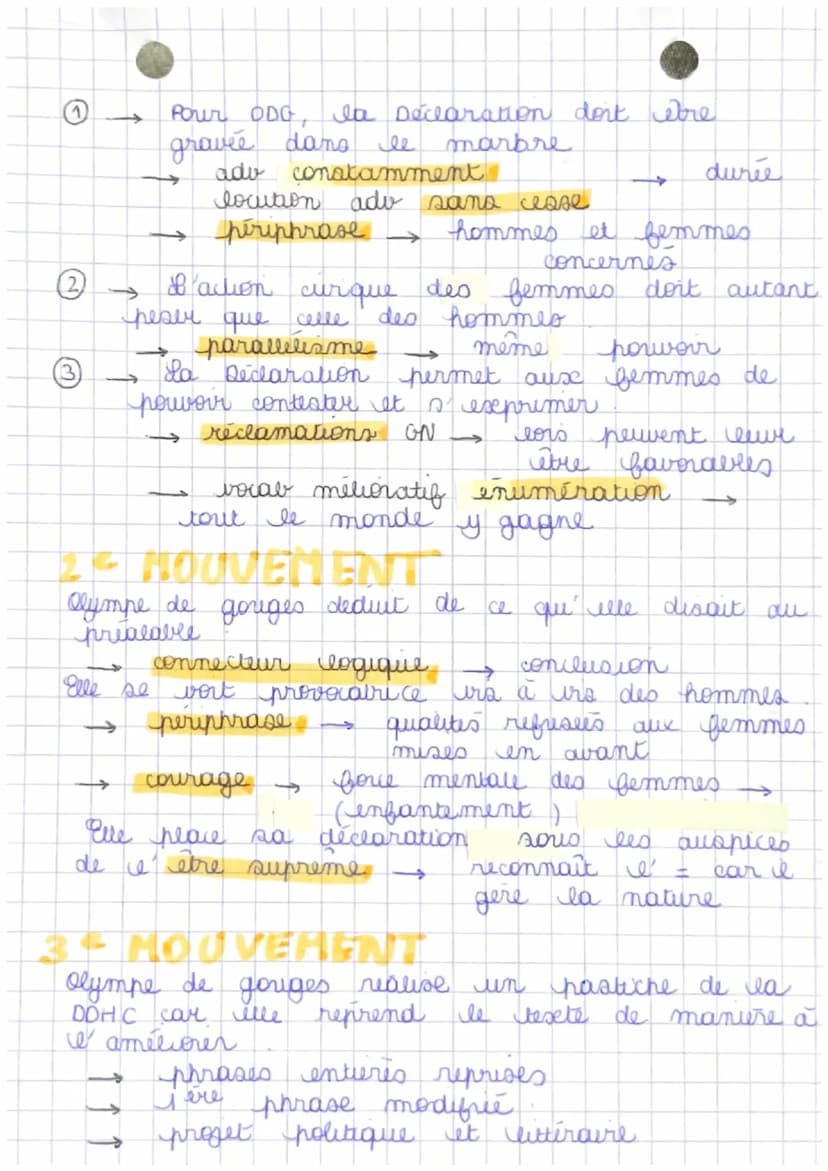 ① → Pour ODG, la Déclaration doit être
gravée dans le marbre
→ adv constamment → durée
locution adv sans cesse
→ périphrase → hommes et femmes
concernés
② → L'action civique des femmes doit autant
peser que celle des hommes
→ parallélisme → même pouvoir
③ → La Déclaration permet aux femmes de
pouvoir contester et s'exprimer.
→ réclamations GN → lois peuvent leur
être favorables
→ vocab mélioratif énumération →
tout le monde y gagne
2e MOUVEMENT
Olympe de gouges déduit de ce qu'elle disait au
préalable
→ connecteur logique → conclusion
Elle se veut provocatrice vis à vis des hommes.
→ périphrase → qualités refusées aux femmes
mises en avant
→ courage → force mentale des femmes →
(enfantement)
Elle place sa déclaration sous les auspices
de l'être suprême → reconnaît l' = car il
gère la nature
3e MOUVEMENT
Olympe de gouges réalise un pastiche de la
DDHC car elle reprend le texte de manière à
l'améliorer
→ phrases entières reprises
→ 1ère phrase modifié.
→ projet politique et littéraire